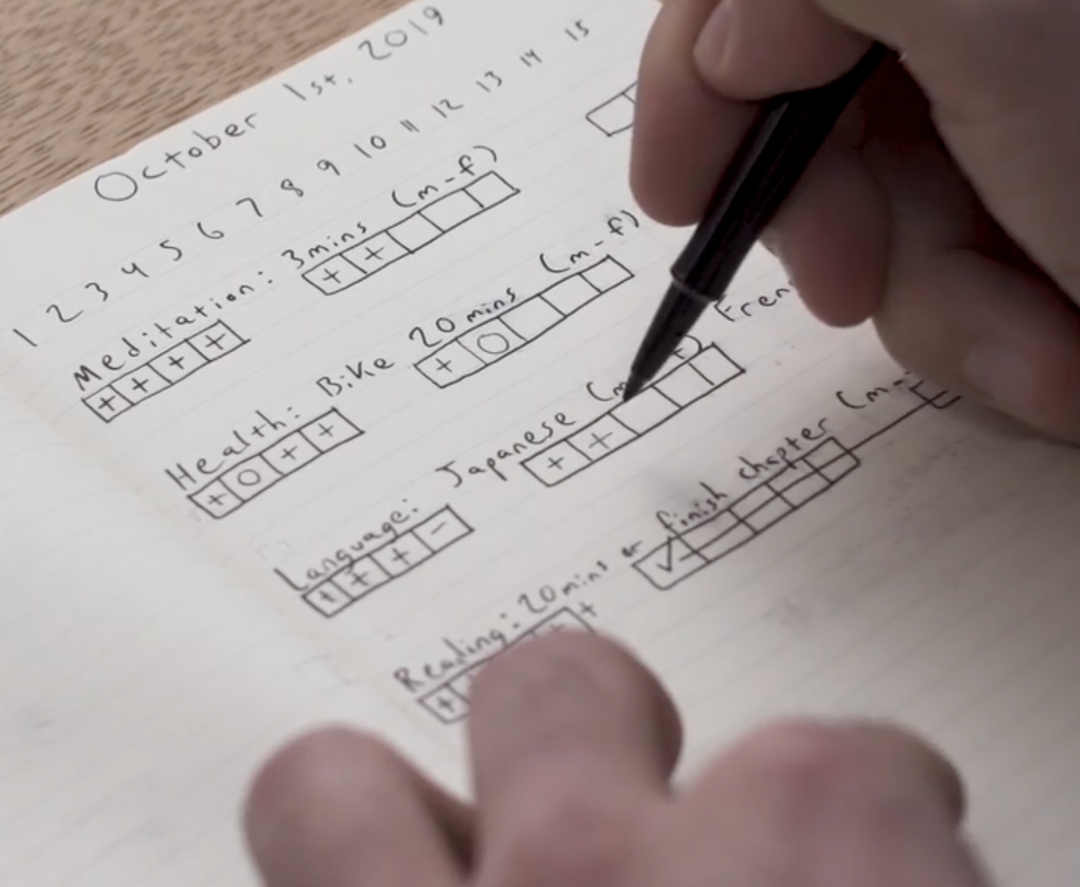 October 1st, 2019
1 2 3 4 5 6 7 8 9 10 11 12 13 14 15
Meditation: 3mins (m-f)
+ + + + + +
Health: Bike 20 mins (m-f)
+ O + + + O
Language: Japanese
+ + + - + +
Reading: 20mins or finish chapter
+ + ✓